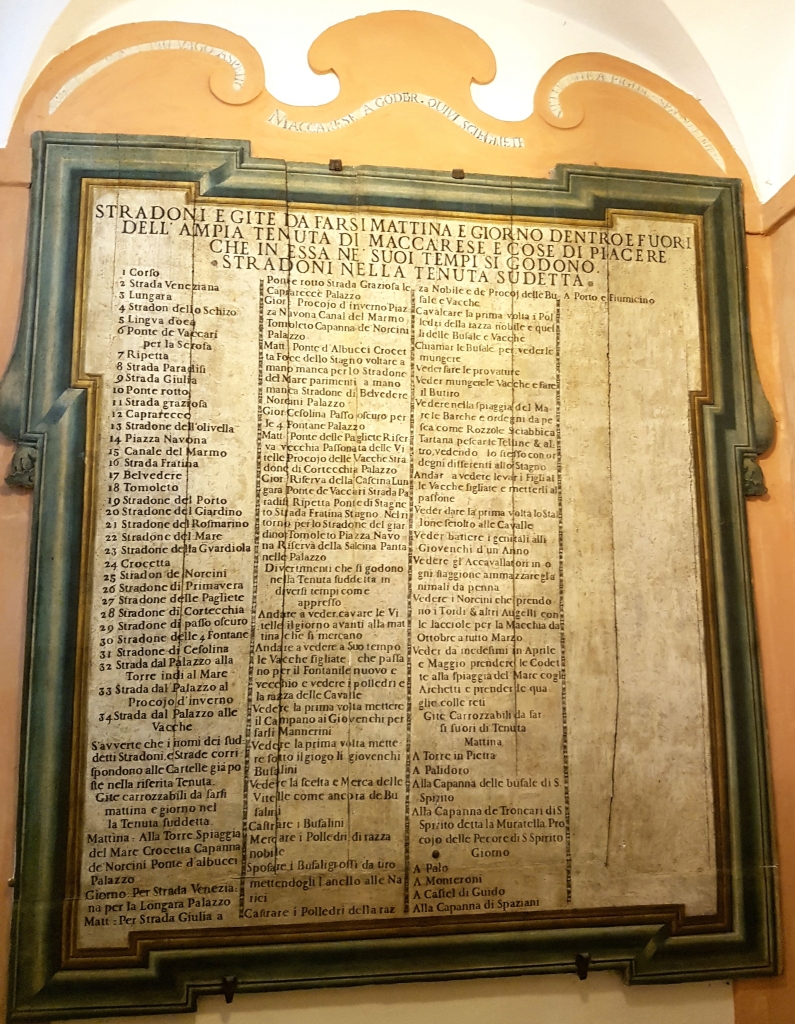 PIU VIGOROSI
MACCARESE A GODER. QUIVI SCIEGLIETE
STRADONI E GITE DA FARSI MATTINA E GIORNO DENTRO E FUORI
DELL' AMPIA TENUTA DI MACCARESE E COSE DI PIACERE
CHE IN ESSA NE' SUOI TEMPI SI GODONO.
STRADONI NELLA TENUTA SUDETTA.
1 Corso
2 Strada Veneziana
3 Lungara
4 Stradon dello Schizo
5 Lingva d'oca
6 Ponte de Vaccari
per la Scrofa
7 Ripetta
8 Strada Paradisi
9 Strada Giulia
10 Ponte rotto
11 Strada graziosa
12 Caprarecce
13 Stradone dell'olivella
14 Piazza Navona
15 Canale del Marmo
16 Strada Fratina
17 Belvedere
18 Tomoleto
19 Stradone del Porto
20 Stradone del Giardino
21 Stradone del Rosmarino
22 Stradone del Mare
23 Stradone della Gvardiola
24 Crocetta
25 Stradon de Norcini
26 Stradone di Primavera
27 Stradone delle Pagliete
28 Stradone di Cortecchia
29 Stradone di passo oscuro
30 Stradone delle 4 Fontane
31 Stradone di Cesolina
32 Strada dal Palazzo alla
Torre indi al Mare
33 Strada dal Palazzo al
Procojo d'inverno
34 Strada dal Palazzo alle
Vacche
S'avverte che i nomi dei sud
detti Stradoni e Strade corri
spondono alle Cartelle già po
ste nella riferita Tenuta.
Gite carrozzabili da farsi
mattina e giorno nel
la Tenuta suddetta.
Mattina: Alla Torre Spiaggia
del Mare Crocetta Capanna
de Norcini Ponte d'albucci
Palazzo
Giorno: Per Strada Venezia:
na per la Longara Palazzo
Matt: Per Strada Giulia a
Ponte rotto Strada Graziosa le
Caprarecce Palazzo
Gior: Procojo d'inverno Piaz
za Navona Canal del Marmo
Tomoleto Capanna de Norcini
Palazzo
Matt: Ponte d'Albucci Crocet
ta Foce dello Stagno voltare a
mano manca per lo Stradone
del Mare parimenti a mano
manca Stradone di Belvedere
Norcini Palazzo
Gior Cesolina Passo oscuro per
le 4 Fontane Palazzo
Matt: Ponte delle Pagliete Riser
va vecchia Passonata delle Vi
telle Procojo delle Vacche Stra
done di Cortecchia Palazzo
Gior: Riserva della Cascina Lun
gara Ponte de Vaccari Strada Pa
radisi Ripetta Ponte di Stagne
to Strada Fratina Stagno. Nel ri
torno per lo Stradone del giar
dino Tomoleto Piazza Navo
na Riserva della Salcina Panta
nelle Palazzo
Divertimenti che si godono
nella Tenuta suddetta in
diversi tempi come
appresso
Andare a veder cavare le Vi
telle il giorno avanti alla mat
tina che si mercano
Andare a vedere a Suo tempo
le Vacche figliate che passa
no per il Fontanile nuovo e
vecchio e vedere i polledri e
la razza delle Cavalle
Vedere la prima volta mettere
il Campano ai Giovenchi per
farli Mannerini
Vedere la prima volta mette
re sotto il giogo li giovenchi
Bufalini
Vedere la scelta e Merca delle
Vitelle come ancora de Bu
falini
Castrare i Bufalini
Mercare i Polledri di razza
nobile
Sposare i Bufali grossi da tiro
mettendogli l'anello alle Na
rici
Castrare i Polledri della raz
za Nobile e de Procoj delle Bu
fale e Vacche
Cavalcare la prima volta i Pol
ledri della razza nobile e quel
li delle Bufale e Vacche
Chiamar le Bufale per vederle
mungere
Veder fare le provature
Veder mungere le Vacche e fare
il Butiro
Vedere nella spiaggia del Ma
re le Barche e ordegni da pe
sca come Rozzole Sciabbica
Tartana pescar e Telline & al
tro, vedendo lo stesso con or
degni differenti allo Stagno
Andar a vedere levar i Figli al
le Vacche figliate e metterli al
passone
Veder dare la prima volta lo Stal
lone sciolto alle Cavalle
Veder battere i genitali alli
Giovenchi d'un Anno
Vedere gl'Accavallatori in o
gni stagione ammazzare gl'a
nimali da penna
Vedere i Norcini che prendo
no i Tordi & altri Augelli con
le lacciole per la Macchia da
Ottobre a tutto Marzo
Veder da medesimi in Aprile
e Maggio prendere le Codet
te alla spiaggia del Mare cogl'
Archetti e prender le qua
glie colle reti
Gite Carrozzabili da far
si fuori di Tenuta
Mattina
A Torre in Pietra
A Palidoro
Alla Capanna delle bufale di S
Spirito
Alla Capanna de Troncari di S
Spirito detta la Muratella Pro
cojo delle Pecore di S Spirito
Giorno
A Palo
A Monteroni
A Castel di Guido
Alla Capanna di Spaziani
A Porto e Fiumicino